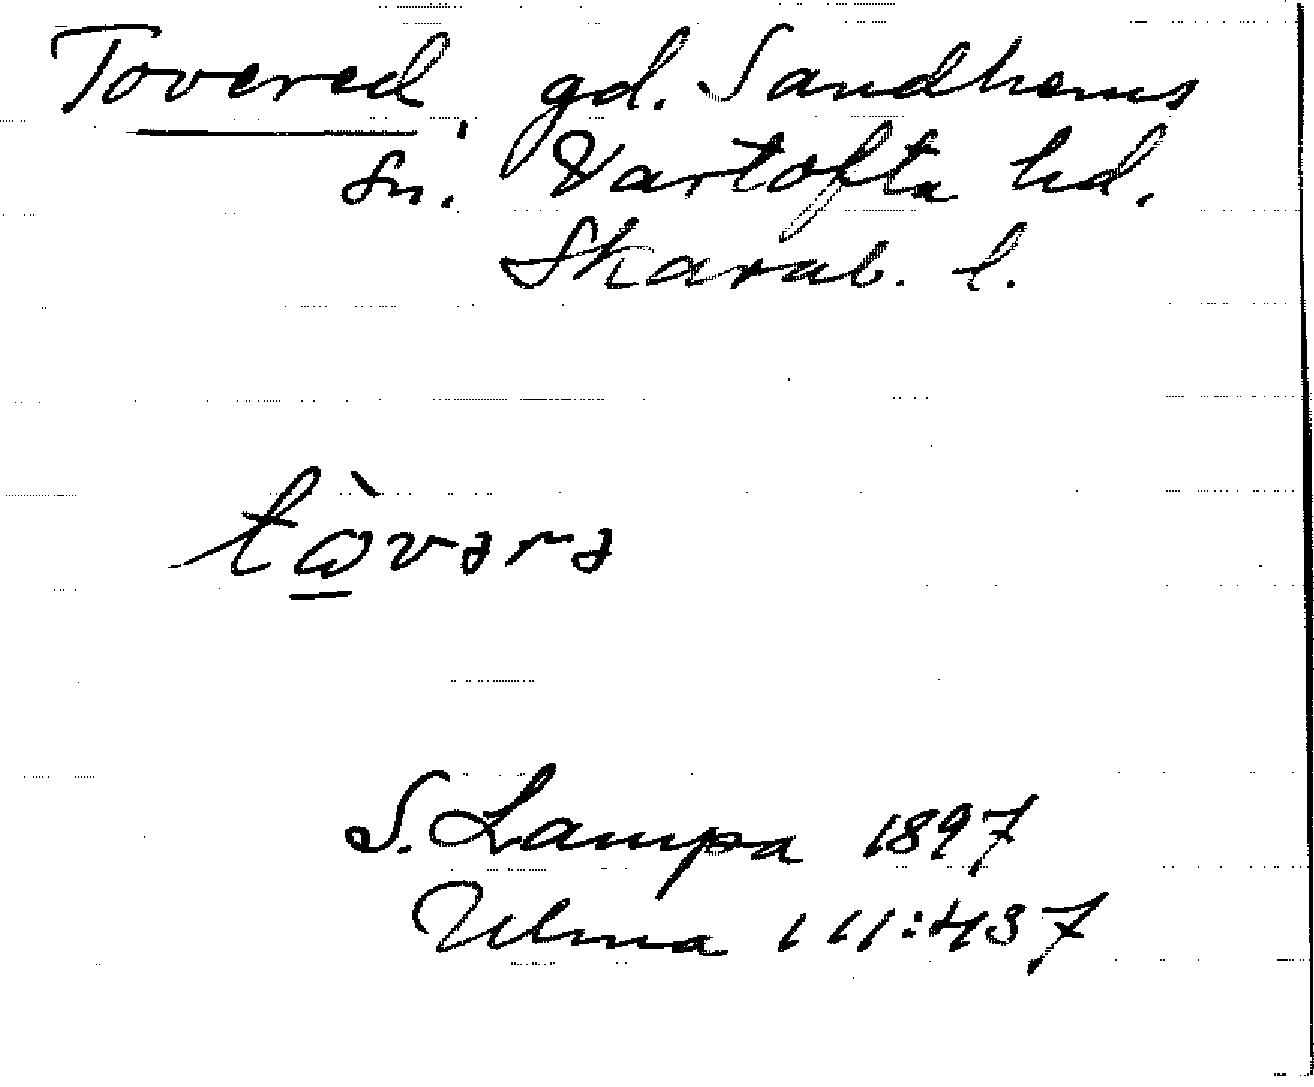 Tovered, gd. Sandhems
sn. Vartofta hd.
Skarab. l.
tὼ̱vərə
S. Lampa 1897
Ulma 111:437